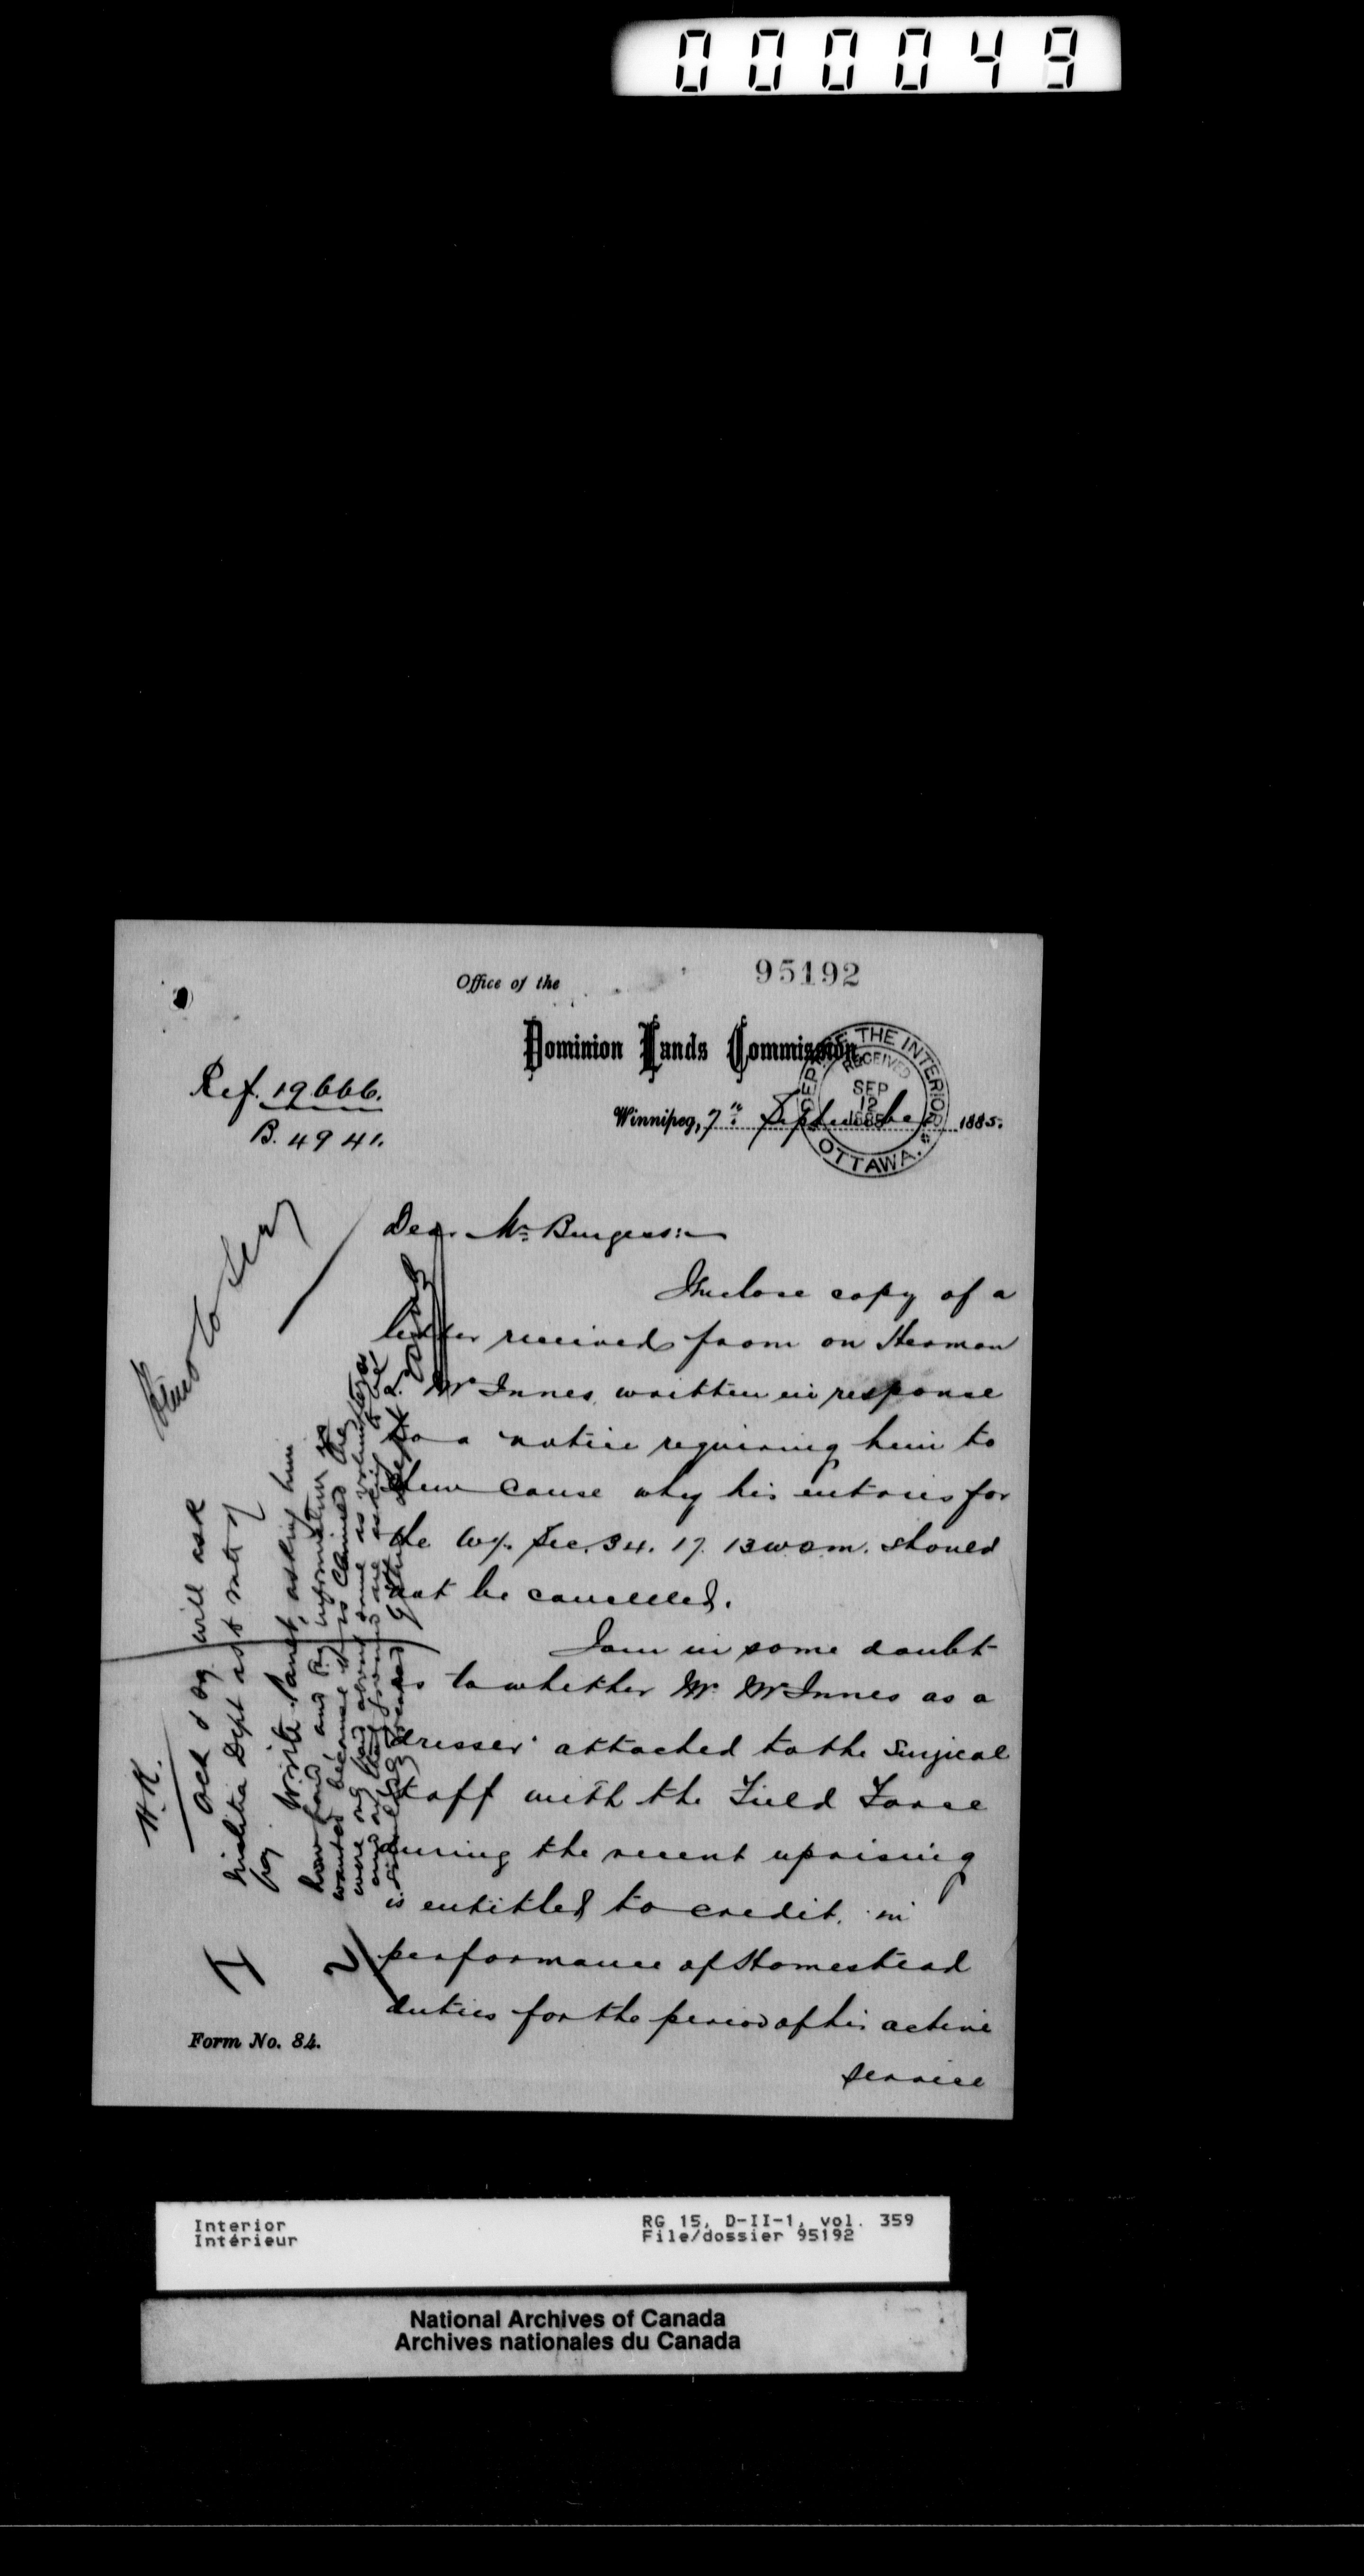 000049
95192
Office of the
Dominion Lands Commission,
DEPT OF THE INTERIOR
RECEIVED
SEP
12
1885
OTTAWA.
Ref. 19666.
B. 4941.
Winnipeg, 7th September 1885.
Dear Mr Burgess:—
Inclose copy of a
letter received from on Herman
McInnes written in response
to a notice requiring him to
shew cause why his entries for
the W½ Sec. 34. 17. 13 W 2 m. should
not be cancelled.
I am in some doubt
as to whether Mr McInnes as a
dresser attached to the Surgical
Staff with the Field Force
during the recent uprising
is entitled to credit in
performance of Homestead
duties for the period of his active
service
H.K.
Ack & say will ask
Militia Dept as to
pay
1
2
Write Panet, asking him
how paid and say information is
wanted because it is claimed
Form No. 84.
Interior
Intérieur
RG 15, D-II-1, vol. 359
File/dossier 95192
National Archives of Canada
Archives nationales du Canada